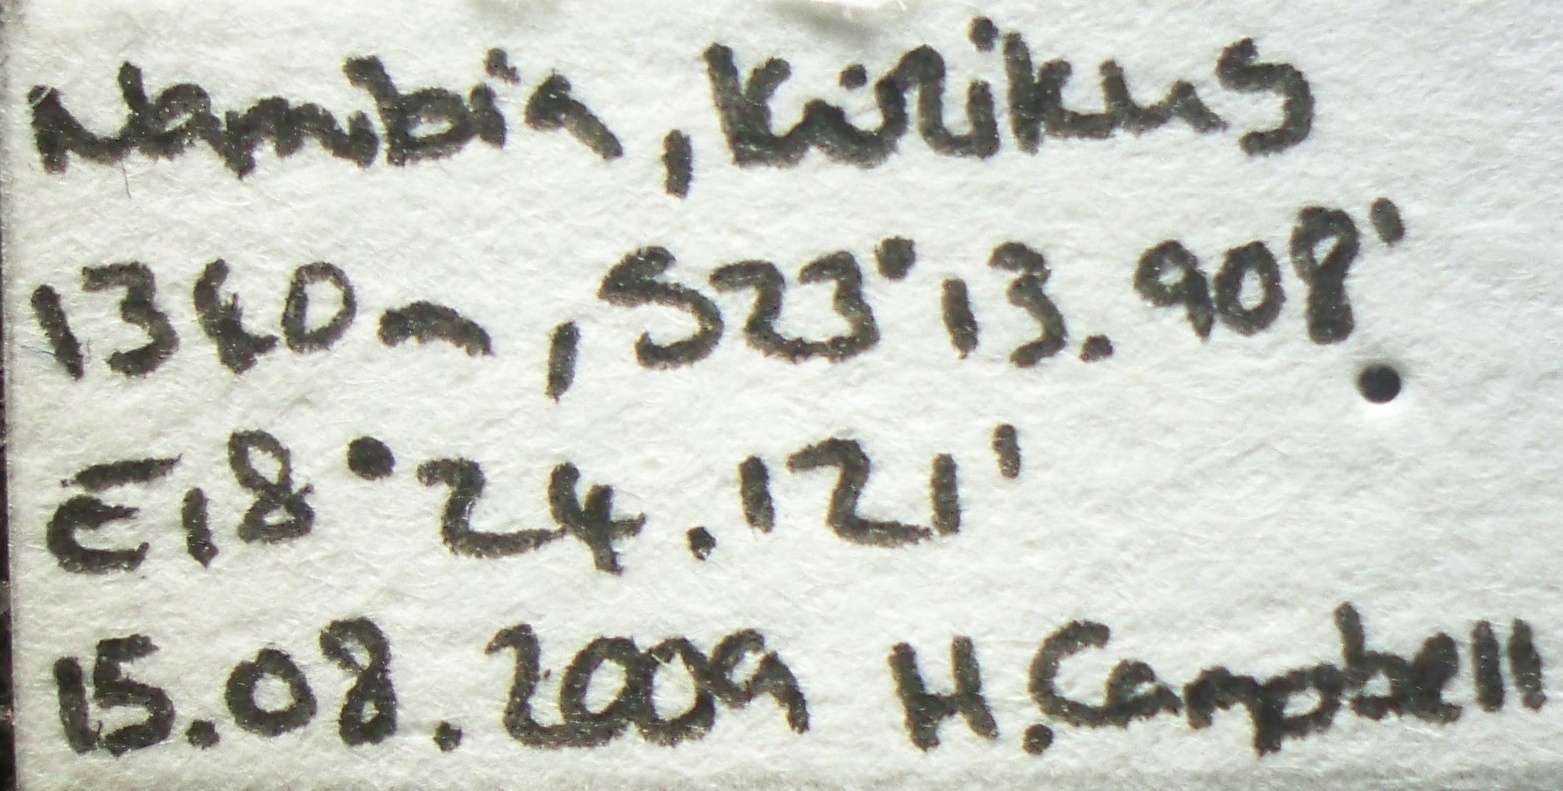 Namibia, Kirikus
1340m, S23°13.908'
E18°24.121'
15.08.2009 H.Campbell